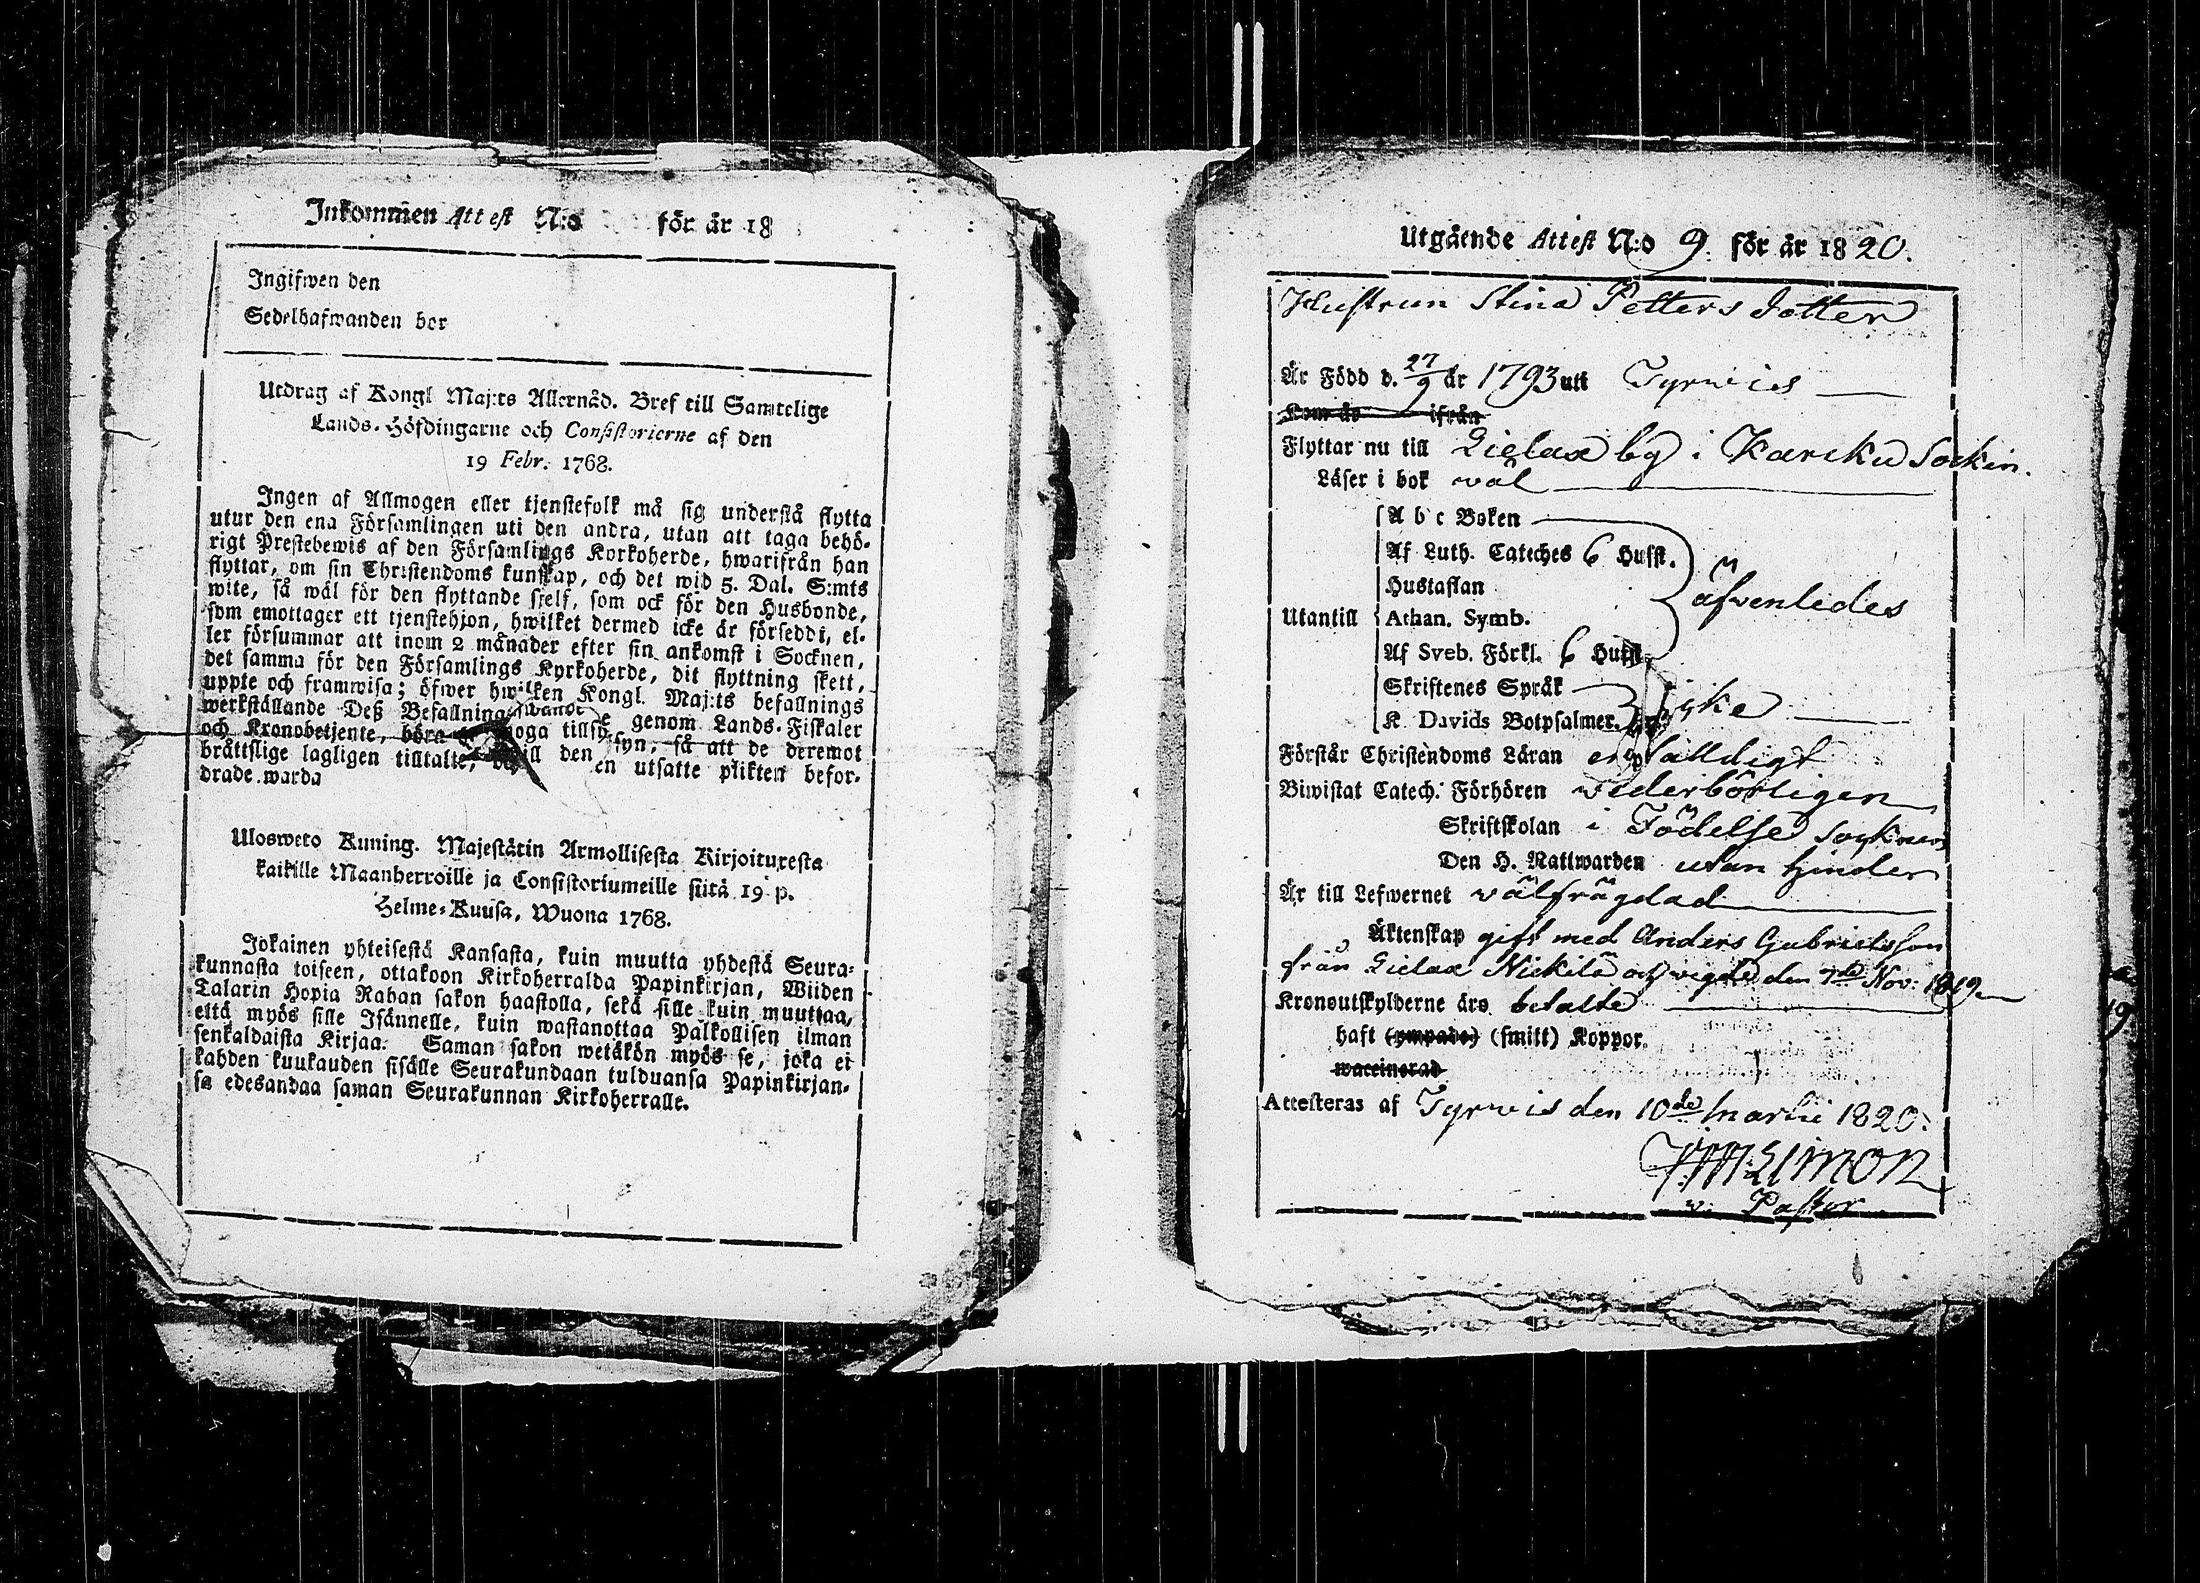 Inkommen Attest N:o för år 18
Ingifwen den
Sedelhafwanden bor
Utdrag af Kongl Maj:ts Allernåd. Bref till Samtelige
Lands-Höfdingarne och Consistorierne af den
19 Febr. 1768.
Ingen af Allmogen eller tjenstefolk må sig understå flytta
utur den ena Församlingen uti den andra, utan att taga behö-
rigt Prestebewis af den Församlings Korkoherde, hwarifrån han
flyttar, om sin Christendoms kunskap, och det wid 5. Dal. S:mts
wite, så wäl för den flyttande sjelf, som ock för den Husbonde,
som emottager ett tjenstehjon, hwilket dermed icke är försedt, el-
ler försummar att inom 2 månader efter sin ankomst i Socknen,
det samma för den Församlings Kyrkoherde, dit flyttning skett,
uppte och framwisa; öfwer hwilken Kongl. Maj:ts befallnings
werkställande Deß Befallnings genom Lands-Fiskaler
och Kronobetjente, böra noga så att de deremot
bråttslige lagligen tilltalte, till den utsatte plikten befor-
drade warda
Ulosweto Kuning. Majestätin Armollisesta Kirjoituxesta
kaikille Maanherroille ja Consistoriumeille siitä 19 p.
Helme-Kuusa, Wuona 1768.
Jokainen yhteisestä Kansasta, kuin muutta yhdestä Seura-
kunnasta toiseen, ottakoon Kirkoherralda Papinkirjan, Wiiden
Talarin Hopia Rahan sakon haastolla, sekä sille kuin muuttaa,
että myös sille Isännelle, kuin wastanottaa Palkollisen ilman
senkaldaista Kirjaa: Saman sakon wetäkön myös se, joka ei
kahden kuukauden sisälle Seurakundaan tulduansa Papinkirjan-
sa edesandaa saman Seurakunnan Kirkoherralle.
Utgående Attest N:o 9. för år 1820.
Hustrun Stina Petters dotter
Är Född d. 27/9 år 1793 uti Tyrwis
Kom år ifrån
Flyttar nu till Lielax by i Karcku Sockin.
Läser i bok wäl
A b c Boken
Af Luth. Cateches 6 Hufst.
Hustaflan
äfwenledes
Utantill Athan. Symb.
Af Sveb. Förkl. 6 Hufst.
Skriftenes Språk
K. Davids Botpsalmer. icke
Förstår Christendoms Läran enfalldigt
Biwistat Catech. Förhören wederbörligen
Skriftskolan i Födelse socknen
Den H. Nattwarden utan hinder
Är till Lefwernet wälfrägdad
Äktenskap gift med Anders Gabrielsson
från Lielax Nickilä och wigde den 7de Nov: 1819
Kronoutskylderne äro betalte
haft (ympade) (smitt) Koppor.
waccinerad
Attesteras af Tyrwis den 10de Martii 1820.
v. Pastor